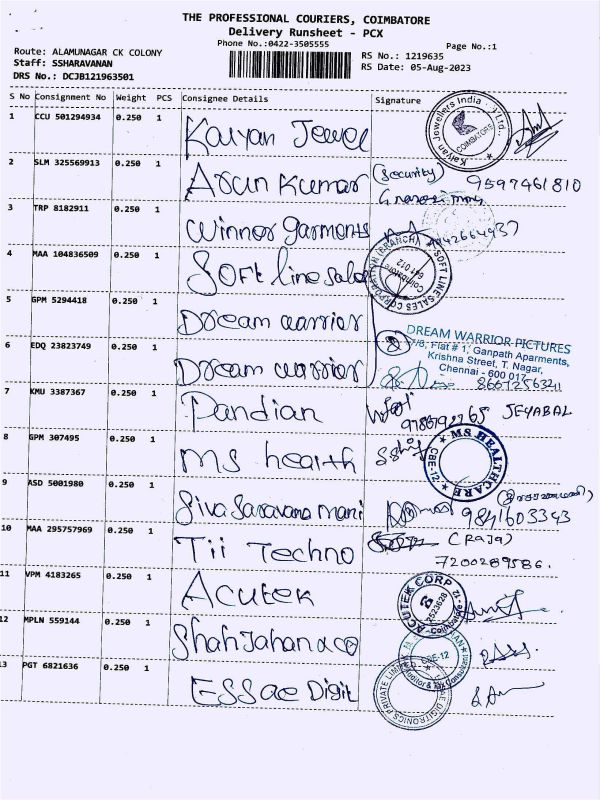 THE PROFESSIONAL COURIERS, COIMBATORE
Delivery Runsheet - PCX
Phone No.:0422-3505555
Page No.:1
Route: ALAMUNAGAR CK COLONY
Staff: SSHARAVANAN
DRS No.: DCJB121963501
RS No.: 1219635
RS Date: 05-Aug-2023
S No Consignment No Weight PCS Consignee Details Signature
1 CCU 501294934 0.250 1 Kalyan Jewel
Kalyan Jewellers India Ltd. COIMBATORE
2 SLM 325569913 0.250 1 Arun Kumar (Security) 9597461810
3 TRP 8182911 0.250 1 Winner garments
4 MAA 104836509 0.250 1 Soft line sales
SOFT LINE SALES CORPORATION (BRANCH) Coimbatore 641 012
5 GPM 5294418 0.250 1 Dream warrior
6 EDQ 23823749 0.250 1 Dream warrior
DREAM WARRIOR PICTURES
Flat # 1, Ganpath Aparments,
Krishna Street, T. Nagar,
Chennai - 600 017
7 KMU 3387367 0.250 1 Pandian JEYABAL
8 GPM 307495 0.250 1 ms health
MS HEALTHCARE CBE-12
9 ASD 5001980 0.250 1 Siva Saravana mani 9841603343
10 MAA 295757969 0.250 1 Tii Techno (Raja)
7200289586.
11 VPM 4183265 0.250 1 Acutek
ACUTEK CORP 2523628 Coimbatore
12 MPLN 559144 0.250 1 Shah Jahan & co
CBE-12
13 PGT 6821636 0.250 1 ESSae Digit
DIGITRONICS PRIVATE LIMITED